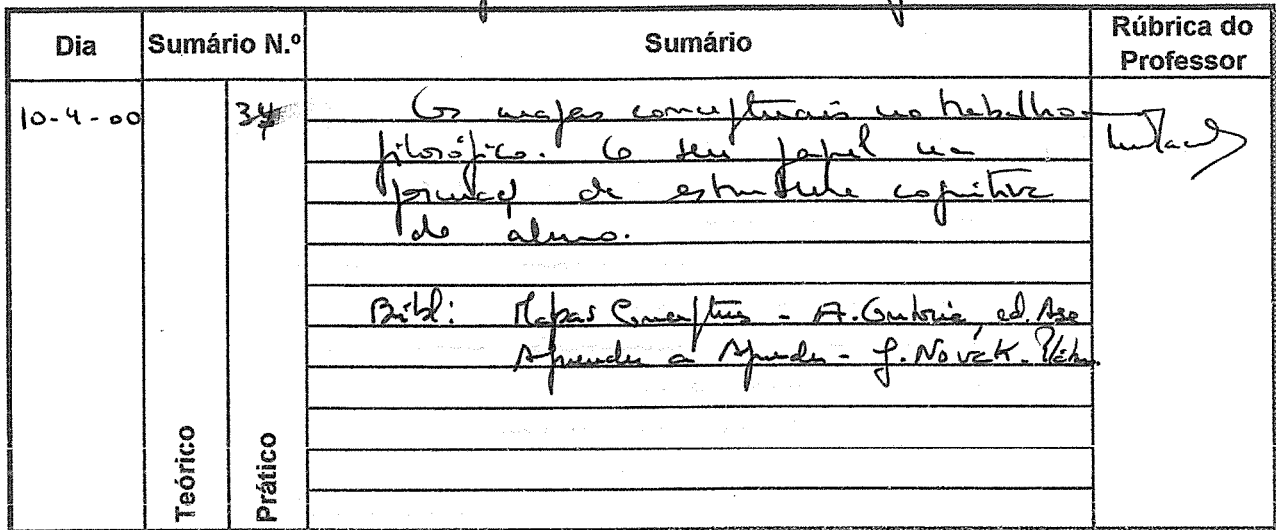 Dia Sumário N.º Sumário Rúbrica do Professor
10-4-00 34 Os mapas conceptuais no trabalho
filosófico. O seu papel na
formação da estrutura cognitiva
do aluno.
Bibl: Mapas Conceptuais - A. Ontoria, ed. Asa
Aprender a Aprender - J. Novak. Plátano
Teórico
Prático